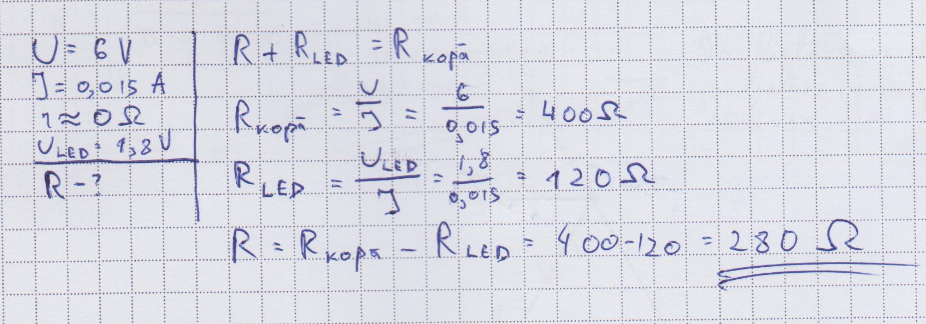 U = 6 V
I = 0,015 A
r ≈ 0 Ω
U LED = 1,8 V
R - ?
R + R LED = R kopā
R kopā = U / I = 6 / 0,015 = 400 Ω
R LED = U LED / I = 1,8 / 0,015 = 120 Ω
R = R kopā - R LED = 400 - 120 = 280 Ω